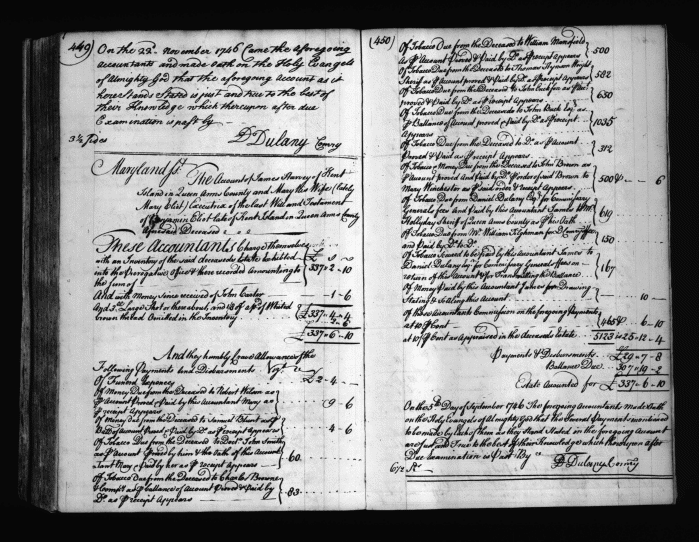 449)
On the 22d. November 1746 Came the aforegoing
accountants and made oath on the Holy Evangels
of Almighty God that the aforegoing account as it
here stands Stated is just and true to the best of
their Knowledge which thereupon after due
Examination is past by
3½ Sides
D Dulany Comry
Maryland Ss. The Account of James Harvey of Kent
Island in Queen Anns County and Mary his Wife (lately
Mary Eliot) Executrix of the last Will and Testament
of Benjamin Eliot late of Kent Island in Queen Anns County
aforesaid Deceased
These Accountants Charge themselves
with an Inventory of the said deceaseds Estate exhibited
into the Prerogative Office & there recorded amounting to
the sum of
£ s d
337 - 2 - 10
And with Money Since received of John Carter
- 1 - 6
And 3 Large Shot or thereabouts, and of Whited
Brown thread Omitted in the Inventory
£ 337 - 4 - 4
- 2 - 6
£ 337 - 6 - 10
And they humbly Crave Allowance of the
Following Payments and Disbursements Vizt
Of Funeral Expences
£ 2 - 4 -
Of Money Due from the Deceased to Robert Wilson as
Account Proved & Paid by this Accountant Mary as
receipt Appears
9 - 6
Of Money Due from the Deceased to Samuel Blunt as
Ball of Account Proved & Paid by Do. as receipt Appears
4 - 6
Of Tobacco Due from the Deceased to Doctr. John Smith
as Account Proved by him & the Oath of this Account
tant Mary & Paid by her as receipt Appears
60
Of Tobacco Due from the Deceased to Charles Browne
& Comp. as ballance of Account Proved & Paid by
Do. as receipt Appears
83
(450)
Of Tobacco Due from the Deceased to William Mansfield
As Account Proved & Paid by Do. as receipt Appears
500
Of Tobacco Due from the Deceased to Thomas Hynson Wright
Sherif as Account proved & Paid by Do. as receipt Appears
582
Of Tobacco Due from the Deceased to John as
proved & Paid by Do. as receipt Appears
630
Of Tobacco Due from the Deceased to John Esqr. as
Ballance of Account proved & paid by Do. as receipt
Appears
1035
Of Tobacco Due from the Deceased to Do. as Account
Proved & Paid as receipt Appears
312
Of Tobacco & Money Due from the Deceased to John Brown as
Account Proved And Paid by Do. Order of said Brown to
Mary Winchester as said order & receipt Appears
500 6
Of Tobacco Due from Daniel Dulany Esqr. for Commissary
Generals fees And Paid by this Accountant James to
Holliday Sherif of Queen Anns County as his Oath
619
Of Tobacco Due from Mr. William Tilghman for Office fees
and Paid by Do. to Do.
150
Of Tobacco Secured to be paid by this Accountant James to
Daniel Dulany Esqr. for Commissary Generals fees on
return of this Account & for Transmitting the Ballance
167
Of Money Paid by this Accountant James for Drawing
Stating & Setling this Account
- 10 -
Of these Accountants Commission on the foregoing Payments
at 10 Cent
465 6 - 10
at 10/ Cent as Appraised in the deceaseds Estate
5123 is 25 - 12 - 4
Payments & Disbursments £ 29 - 7 - 8
Ballance Due 307 - 19 - 2
Estate Accounted for £ 337 - 6 - 10
On the 5th Day of September 1746 The foregoing Accountants made Oath
on the Holy Evangels of Almighty God that the Several Payments mentioned
to be made by each of them as they stand Stated in the foregoing Account
are Just and True to the best of their Knowledge which thereupon after
Due examination is Past By
D Dulany Comry